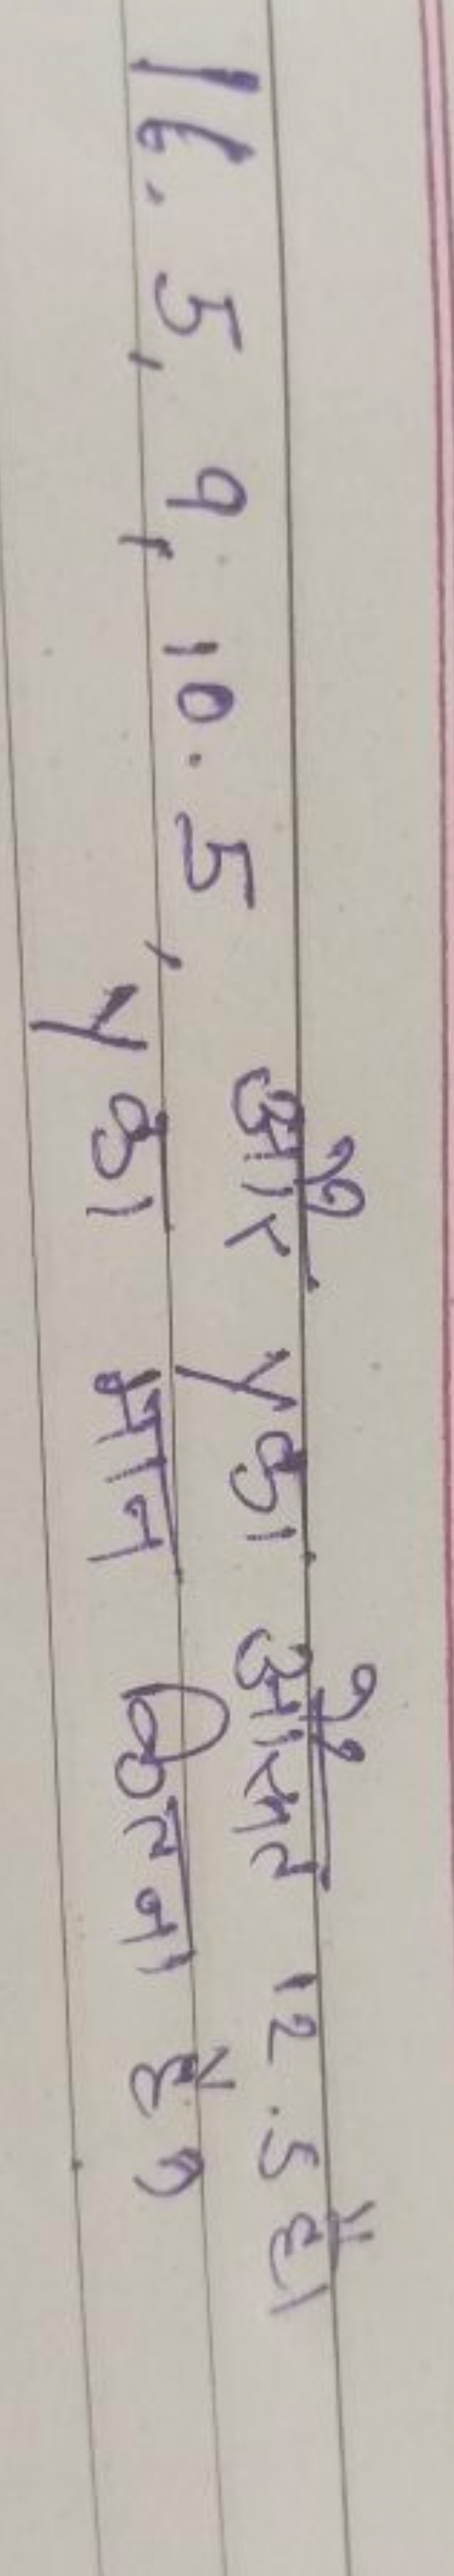 16.5, 9, 10.5, और y का औसत 12.5 है।
y का मान कितना है?